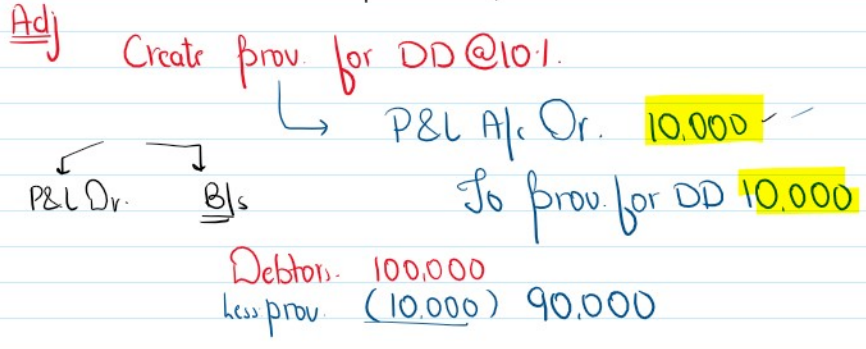 Adj
Create prov. for DD @10%.
P&L A/c Dr. 10,000
P&L Dr. B/s
To prov. for DD 10,000
Debtors. 100,000
Less prov. (10,000) 90,000